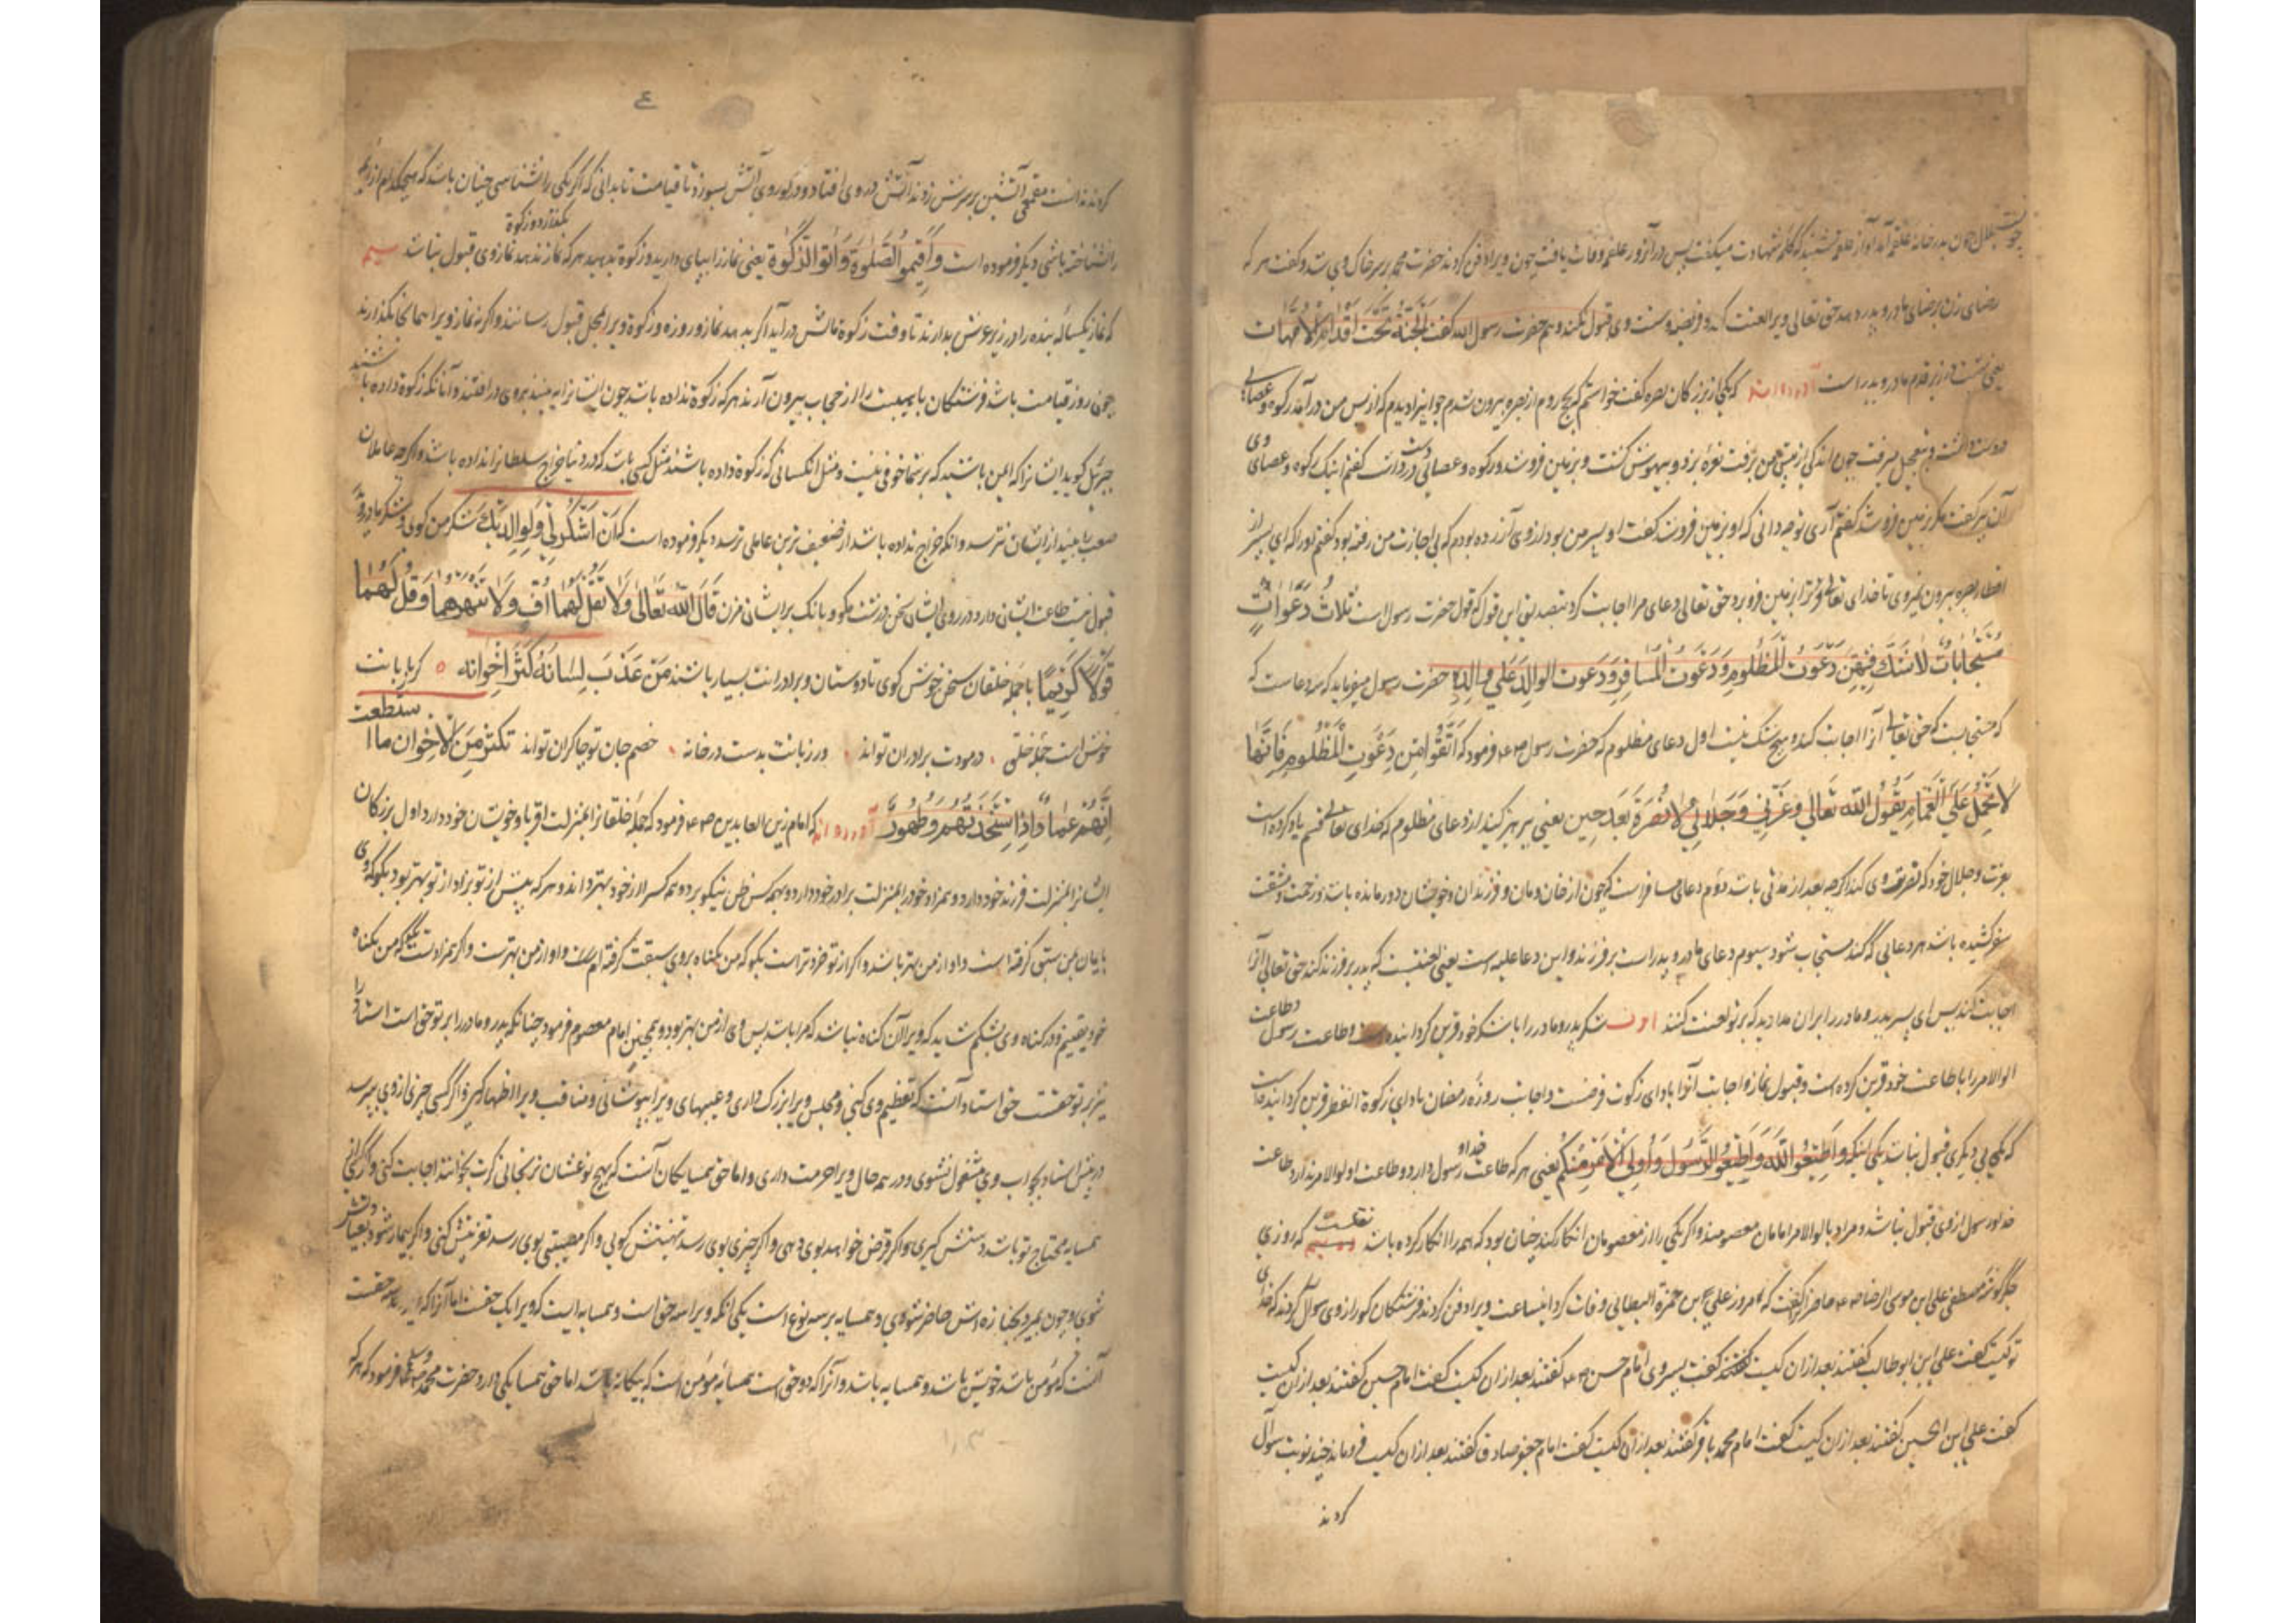 چون بلال بدر خانه علقمه آمد آواز علقمه شنید که کلمه شهادت میگفت پس در آنروز علقمه وفات یافت چون ویرا دفن کردند حضرت محمد بر سر خاک وی شد و گفت هر که
رضای زن برضای مادر و پدر دهد حق تعالی ویرا لعنت کند و فریضه و سنت وی قبول نکند و هم حضرت رسول الله گفت الجَنَّةُ تَحْتَ اَقْدامِ الاُمَّهات
یعنی بهشت در زیر قدم مادر و پدر است آورده‌اند که یکی از بزرگان بصره گفت خواستم که بحج روم از بصره بیرون شدم جوانیرا دیدم که از پس من در آمد رکوه و عصایی
در دست داشت و بتعجیل میرفت چون اندکی از پیش من برفت نعره بزد و بیهوش گشت و بزمین فرو شد و رکوه و عصائی در دست گفتم اینک رکوه و عصای وی
آن پیر گفت مگر بزمین فرو شد گفتم آری تو چه دانی که او بزمین فروشد گفت او پسر من بود از وی آزرده بودم که بی اجازت من رفته بود گفتم اورا که ای پسر از
اقطار بصره بیرون نمیروی تا خدای تعالی ترا بزمین فرو برد حق تعالی دعای مرا اجابت کرد بتصدیق این قول که قول حضرت رسول است ثَلاثُ دَعَوات
مُسْتَجاباتٌ لاشَكَّ فیهِنَّ دَعْوَتُ المَظْلُومِ وَ دَعْوَتُ المُسافِرِ وَ دَعْوَت الوالِدِ عَلی وَلَدِه حضرت رسول میفرماید که سه دعا است که
حق تعالی آنرا اجابت کند و هیچ شک نیست اول دعای مظلوم که حضرت رسول فرمود که اِتَّقُوا مِن دَعْوَتِ المَظْلُومِ فَاِنَّها
لاتُحْمَلُ عَلَی الغَمامِ یَقُولُ اللّه تَعالی وَ عِزَّتی وَ جَلالی لاَنْصُرَنَّهُ بَعْدَ حین یعنی بپرهیز کنید از دعای مظلوم که خدای تعالی قسم یاد کرده است
بعزت و جلال خود که نصرت وی کند اگرچه بعد از مدتی باشد دوم دعای مسافر است که چون از خان و مان و فرزندان و خویشان دور مانده باشد و زحمت و مشقت
سفر کشیده باشد هر دعایی که کند مستجاب شود سیوم دعای مادر و پدر است بر فرزند و این دعا علیه است یعنی لعنتیست که پدر بر فرزند کند حق تعالی آنرا
اجابت کند پس ای پسر پدر و مادر را بران مدارید که بر تو لعنت کنند شکر پدر و مادر را با شکر خود قرین گردانیده است و طاعت رسول و طاعت
اولوالامر را با طاعت خود قرین کرده است و قبول نماز واجابت آنرا با دای زکوت فرضست و اجابت روزه رمضان باداى زکوة الفطر قرین گردانیده است
که یکی بی دیگری قبول نباشد یکی آنکه وَ اَطیعُوا اللّهَ وَ اَطیعُوا الرَّسُولَ وَ اُولِی الاَمْرِ مِنْکُم یعنی هر که طاعت خدا و رسول دارد و طاعت اولوالامر ندارد طاعت
خدا و رسول از وی قبول نباشد و مراد باولوالامر امامان معصومند و اگر یکی را از معصومان انکار کند چنان بود که همه را انکار کرده باشد نقلست که روزی
جگر گوشه مصطفی علی ابن موسی الرضا حاضرانرا گفت که امروز علی بن حمزة البطائی وفات کرد اینساعت ویرا دفن کردند فرشتگان گور از وی سوال کردند که خدای
تو کیست گفت علی ابن ابوطالب گفتند بعد ازان کیست گفت پسر وی امام حسن گفتند بعد ازان کیست گفت امام حسین گفتند بعد ازان کیست
گفت علی ابن الحسین گفتند بعد ازان کیست گفت امام محمد باقر گفتند بعد ازان کیست گفت امام جعفر صادق گفتند بعد ازان کیست فرو ماند چند نوبت سوال
کردند
٤
کردند ندانست مقمعی آتشین بر سرش زدند آتش در وی افتاد و در گور وی آتش بسوزد تا قیامت تا بدانی که اگر یکی را نشناسی چنان باشد که هیچکدام از ایشان
را نشناخته باشی دیگر فرموده است وَ اَقیمُوا الصَّلوةَ وَ اتُوا الزَّکوة یعنی نماز را بپای دارید و زکوة بدهید هر که نماز بگذارد و زکوة ندهد نماز وی قبول نباشد
که نماز یکساله بنده را در زیر عرش بدارند تا وقت زکوة مالش درآید اگر بدهد نماز و روزه و زکوة ویرا بمحل قبول رسانند و اگر نه نماز ویرا همانجا بگذارند
چون روز قیامت باشد فرشتگان با هیبت را از حجاب بیرون آرند هر که زکوة نداده باشد چون ایشانرا ببیند بروی در افتند و آنانکه زکوة داده باشند
جبرئیل گوید ایشانرا که ایمن باشید که بر شما خوفی نیست و مثل آنکسانی که زکوة داده باشند مثل کسی باشد که در دنیا خراج سلطانرا نداده باشد و اگرچه عاملان
صعب را بیند از ایشان نترسد و آنکه خراج نداده باشد از ضعیف ترین عاملی ترسد دیگر فرموده است که اَنِ اشْکُرْ لی وَ لِوالِدَیْكَ شکر من گوی و شکر مادر و پدر
قَالَ اللّه تَعالی وَلا تَقُلْ لَهُما اُفٍّ وَلا تَنْهَرْهُما وَ قُلْ لَهُما
قَوْلًا کَریمًا با جمله خلقان سخن خوش گوی تا دوستان و برادرانت بسیار باشند مَنْ عَذُبَ لِسانُهُ کَثُرَ اِخْوانُه ٥ گر زبانت
خوش است جمله خلق در مودت برادران تواند ور زبانت بدست در خانه خصم جان تو چاکران تواند تکثر من الاخوان ما استطعت
اِنَّهُمْ عِمادٌ اِذَا اسْتَنْجَدْتَهُمْ وَ ظُهُورٌ آورده‌اند که امام زین العابدین فرمود که جمله خلقانرا بمنزلت اقربا و خویشان خود دارد اول بزرگان
ایشانرا بمنزلت فرزند خود دارد و همزاد خود را بمنزلت برادر خود دارد و بهمه کس ظن نیکو برد و همه کس را از خود بهتر داند و هر که پیش از تو بزاد از تو بهتر بود بگو که وی
بایمان بر من سبقت گرفته است و او از من بهتر باشد و اگر از تو خردتر است بگو که من بگناه بر وی سبقت گرفته‌ام و او از من بهترست و اگر همزادتست بگو که من بگناه
خود یقینم و در گناه وی بشکم شاید که ویرا آن گناه نباشد که مرا باشد پس وی از من بهتر بود و همچنین امام معصوم فرمود چنانکه پدر و مادر را بر تو حق است استاد را
نیز بر تو حقست حق استاد آنست که تعظیم وی کنی و مجلس ویرا بزرگ داری و عیبهای ویرا بپوشانی و مناقب ویرا اظهار کنی و اگر کسی چیزی از وی پرسد
در پیش استاد بجواب وی مشغول نشوی و در همه حال ویرا حرمت داری و اما حق همسایگان آنست که بهیچ نوعشان نرنجانی گرت بخوانند اجابت کنی و اگر
همسایه محتاج تو باشد دستش گیری و اگر قرض خواهد بوی دهی و اگر چیزی بوی رسد تهنیتش گویی و اگر مصیبتی بوی رسد تعزیتش کنی و اگر بیمار شود بعیادتش
شوی و چون بمیرد بجنازه‌اش حاضر شوی و همسایه بر سه نوع است یکی آنکه ویرا سه حق است و همسایه ایست که ویرا یک حقست اما آنرا که سه حقست
آنست که مؤمن باشد خویش باشد و همسایه باشد و آنرا که دو حق است همسایه مؤمن است که بیگانه باشد اما حق همسایگی دارد حضرت محمد فرمود که هر که